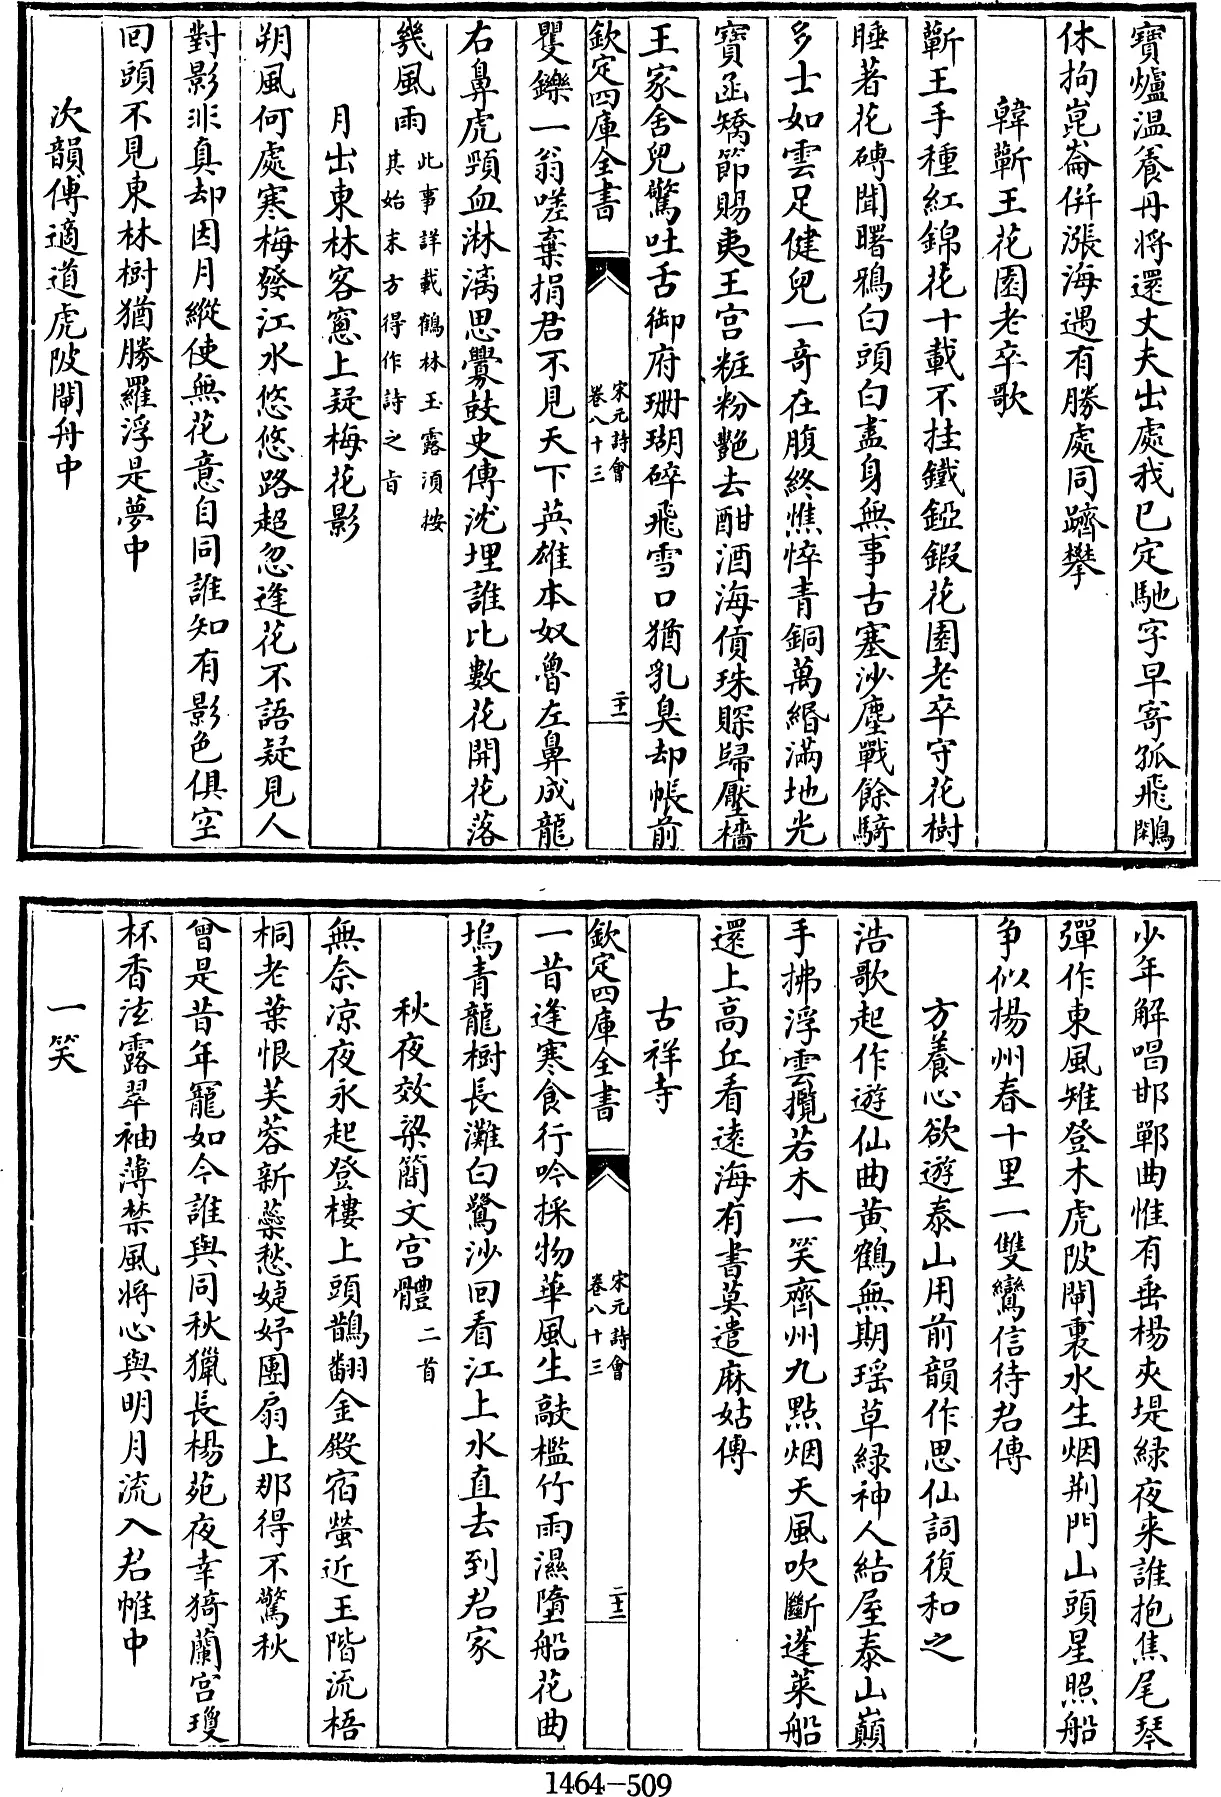 寶爐温養丹將還丈夫出處我已定馳字早寄孤飛鷴
休拘崑崙併漲海遇有勝處同躋攀
韓蘄王花園老卒歌
蘄王手種紅錦花十載不挂鐵錏鍜花園老卒守花樹
睡著花磚聞曙鴉白頭白盡身無事古塞沙塵戰餘騎
多士如雲足健兒一奇在腹終憔悴青銅萬緡滿地光
寶函矯節賜夷王宫粧粉艷去酣酒海償珠賝歸壓檣
王家舍兒驚吐舌御府珊瑚碎飛雪口猶乳臭却帳前
欽定四庫全書
宋元詩會
卷八十三
二十一
矍鑠一翁嗟棄捐君不見天下英雄本奴魯左鼻成龍
右鼻虎頸血淋漓思釁鼓史傳沈埋誰比數花開花落
幾風雨
此事詳載鶴林玉露須按
其始末方得作詩之旨
月出東林客窻上疑梅花影
朔風何處寒梅發江水悠悠路超忽逢花不語疑見人
對影非真却因月縱使無花意自同誰知有影色俱空
回頭不見東林樹猶勝羅浮是夢中
次韻傅適道虎陂閘舟中
少年解唱邯鄲曲惟有垂楊夾堤緑夜来誰抱焦尾琴
彈作東風雉登木虎陂閘裏水生烟荆門山頭星照船
争似楊州春十里一雙鸞信待君傳
方養心欲遊泰山用前韻作思仙詞復和之
浩歌起作遊仙曲黄鶴無期瑶草緑神人結屋泰山巔
手拂浮雲攬若木一笑齊州九點烟天風吹斷蓬莱船
還上高丘看遠海有書莫遣麻姑傳
古祥寺
欽定四庫全書
宋元詩會
卷八十三
二十二
一昔逢寒食行吟採物華風生敲檻竹雨濕墮船花曲
塢青龍樹長灘白鷺沙回看江上水直去到君家
秋夜效梁簡文宫體
二首
無奈凉夜永起登樓上頭鵲翻金殿宿螢近玉階流梧
桐老葉恨芙蓉新蘂愁婕妤團扇上那得不驚秋
曾是昔年寵如今誰與同秋獵長楊苑夜幸猗蘭宫瓊
杯香泫露翠袖薄禁風將心與明月流入君帷中
一笑
1464—509